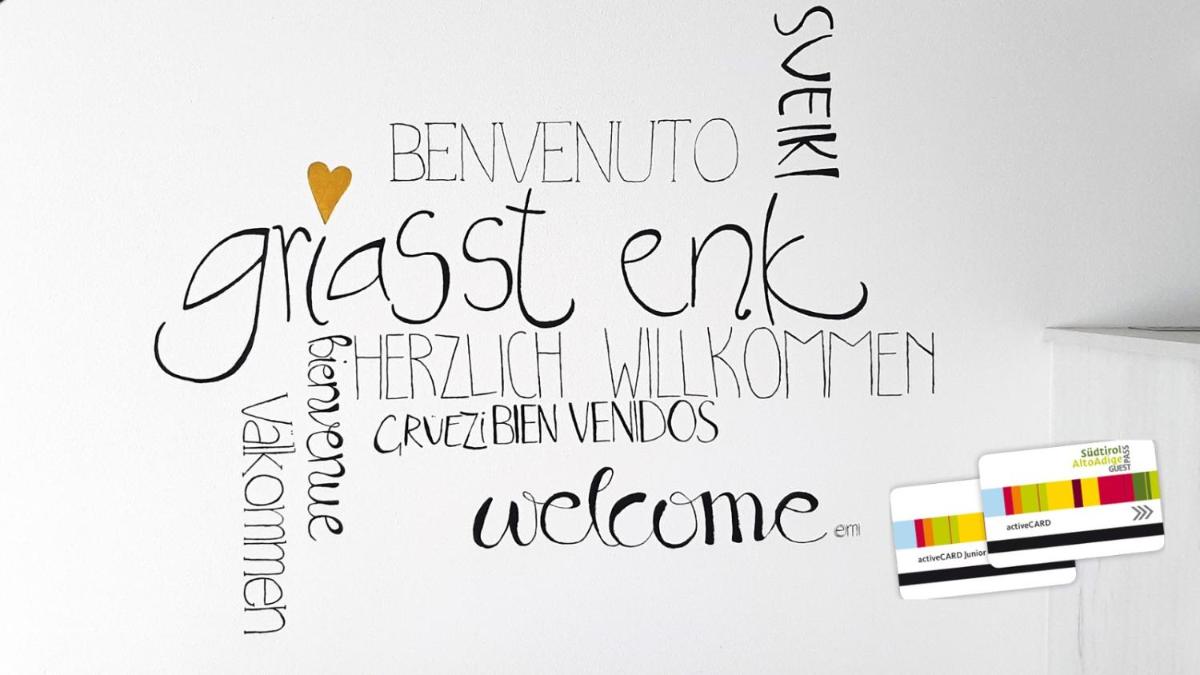 SVEIKI
BENVENUTO
griasst enk
bienvenue
HERZLICH WILLKOMMEN
Välkommen
GRÜEZi BIEN VENIDOS
welcome
emi
Südtirol
AltoAdige
GUEST PASS
activeCARD
activeCARD Junior